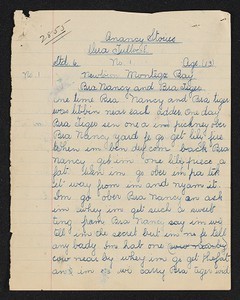 2855
Anancy Stories
Std 6 No. 1 Age (13)
No. 1 Montego Bay
Bra Nancy and Bra Tiger
One time Bra Nancy and Bra tiger
was libbin near each adder. one day
Bra Tiger sen one a im pickney ober
Bra Nancy yard fe go get lilly fire
when im ben dey come back Bra
Nancy get im one lilly piece a
fat. when im go ober im pa tek
it way from im and nyam it.
Im go ober Bra Nancy an ask
im whey im get such a sweet
ting from. Bra Nancy say im wi
tell im the secret but im no fe tell
any body. Im hab one
cow near by whey im go get the fat
and im wi carry Bra Tiger and